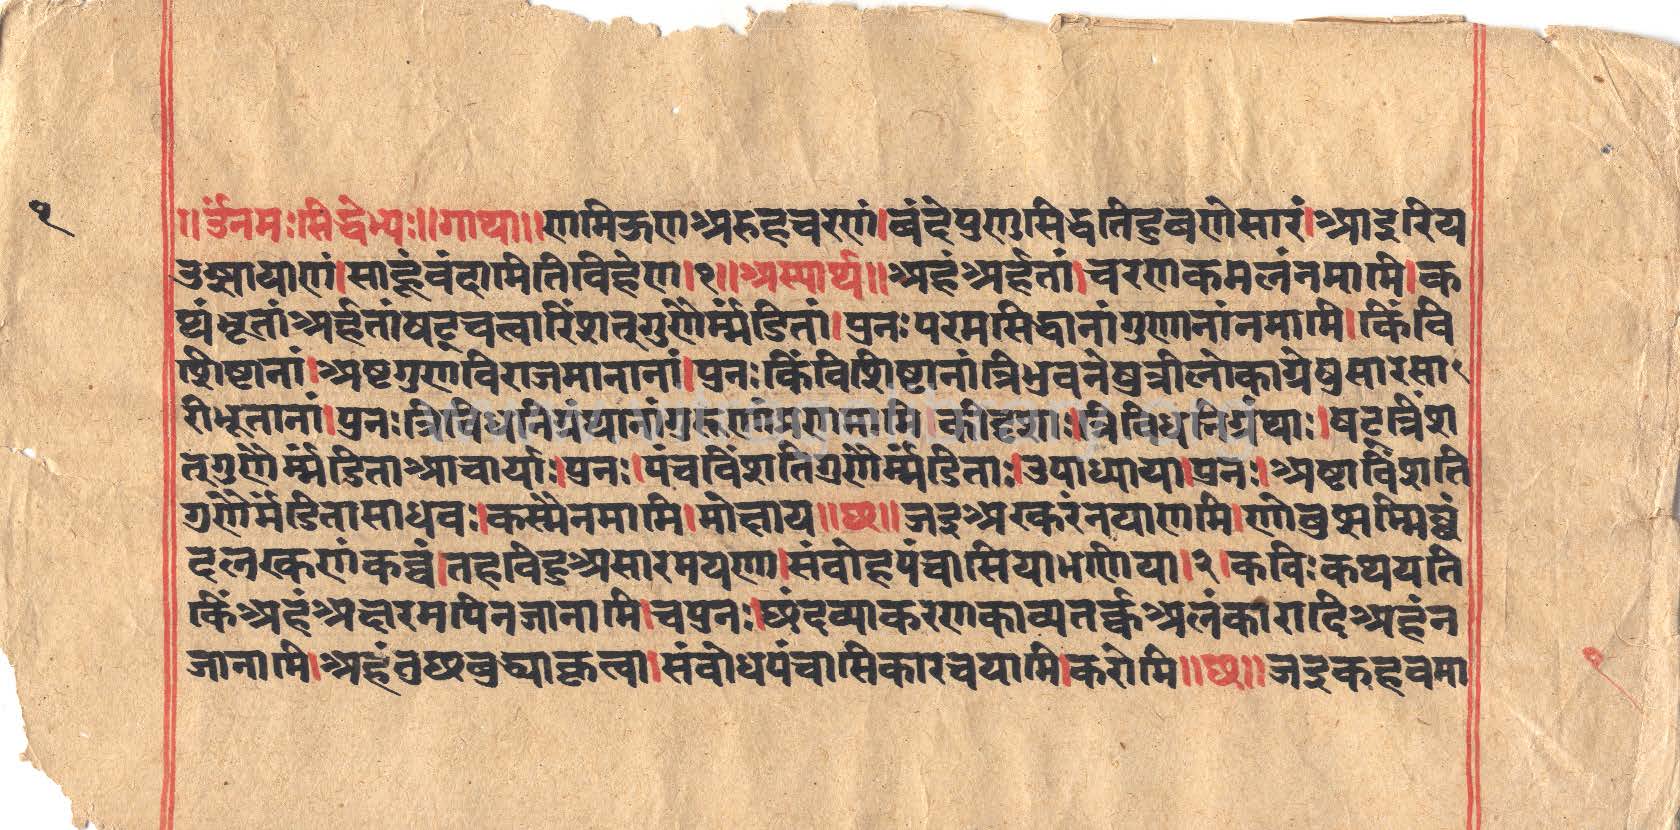 १
॥ र्उंनमःसिद्वेभ्यः॥गाथा॥णमिऊणअरुहचरणं।वंदेपुणुसिद्धतिहुवणेसारं।आइरिय
उझायाणं।साहूवंदामितिविहेण।१॥अस्यार्थ॥अहंअर्हतां।चरणकमलंनमामि।क
थंभूतांअर्हतांषट्चत्वारिंशत्गुणैर्म्मंडितां।पुनःपरमसिद्धानांगुणानांनमामि।किंवि
शिष्टानां।अष्टगुणविराजमानानां।पुनःकिंविशिष्टानांत्रिभुवनेषुत्रीलोकाग्रेषुसारसा
रीभूतानां।पुनःत्रिविधनिर्ग्रंथानांचरणानांनमामि।कीदृशाः।त्रिविधनिर्ग्रंथाः।षट्त्रिंश
त्गुणैर्म्मंडिताआचार्याः।पुनः।पंचविंशतिगुणैर्म्मंडिताः।उपाध्याया।पुनः।अष्टाविंशति
गुणैर्मंडितासाधवः।कस्मैनमामि।मोक्षाय॥छ॥जइअरकरंनयाणमि।णोवुझम्मिछं
दलरकणंकव्वं।तहविहुअसारमयण।संवोहपंचासियाभणिया।२।कविःकथयति
किंअहंअक्षरमपिनजानामि।चपुनः।छंदव्याकरणकाव्यतर्क्कअलंकारादिअहंन
जानामि।अहंतुछवुद्ध्याकृत्वा।संवोधपंचासिकारचयामि।करोमि॥छ॥जइकहवमा
www.vitragelibrary.org